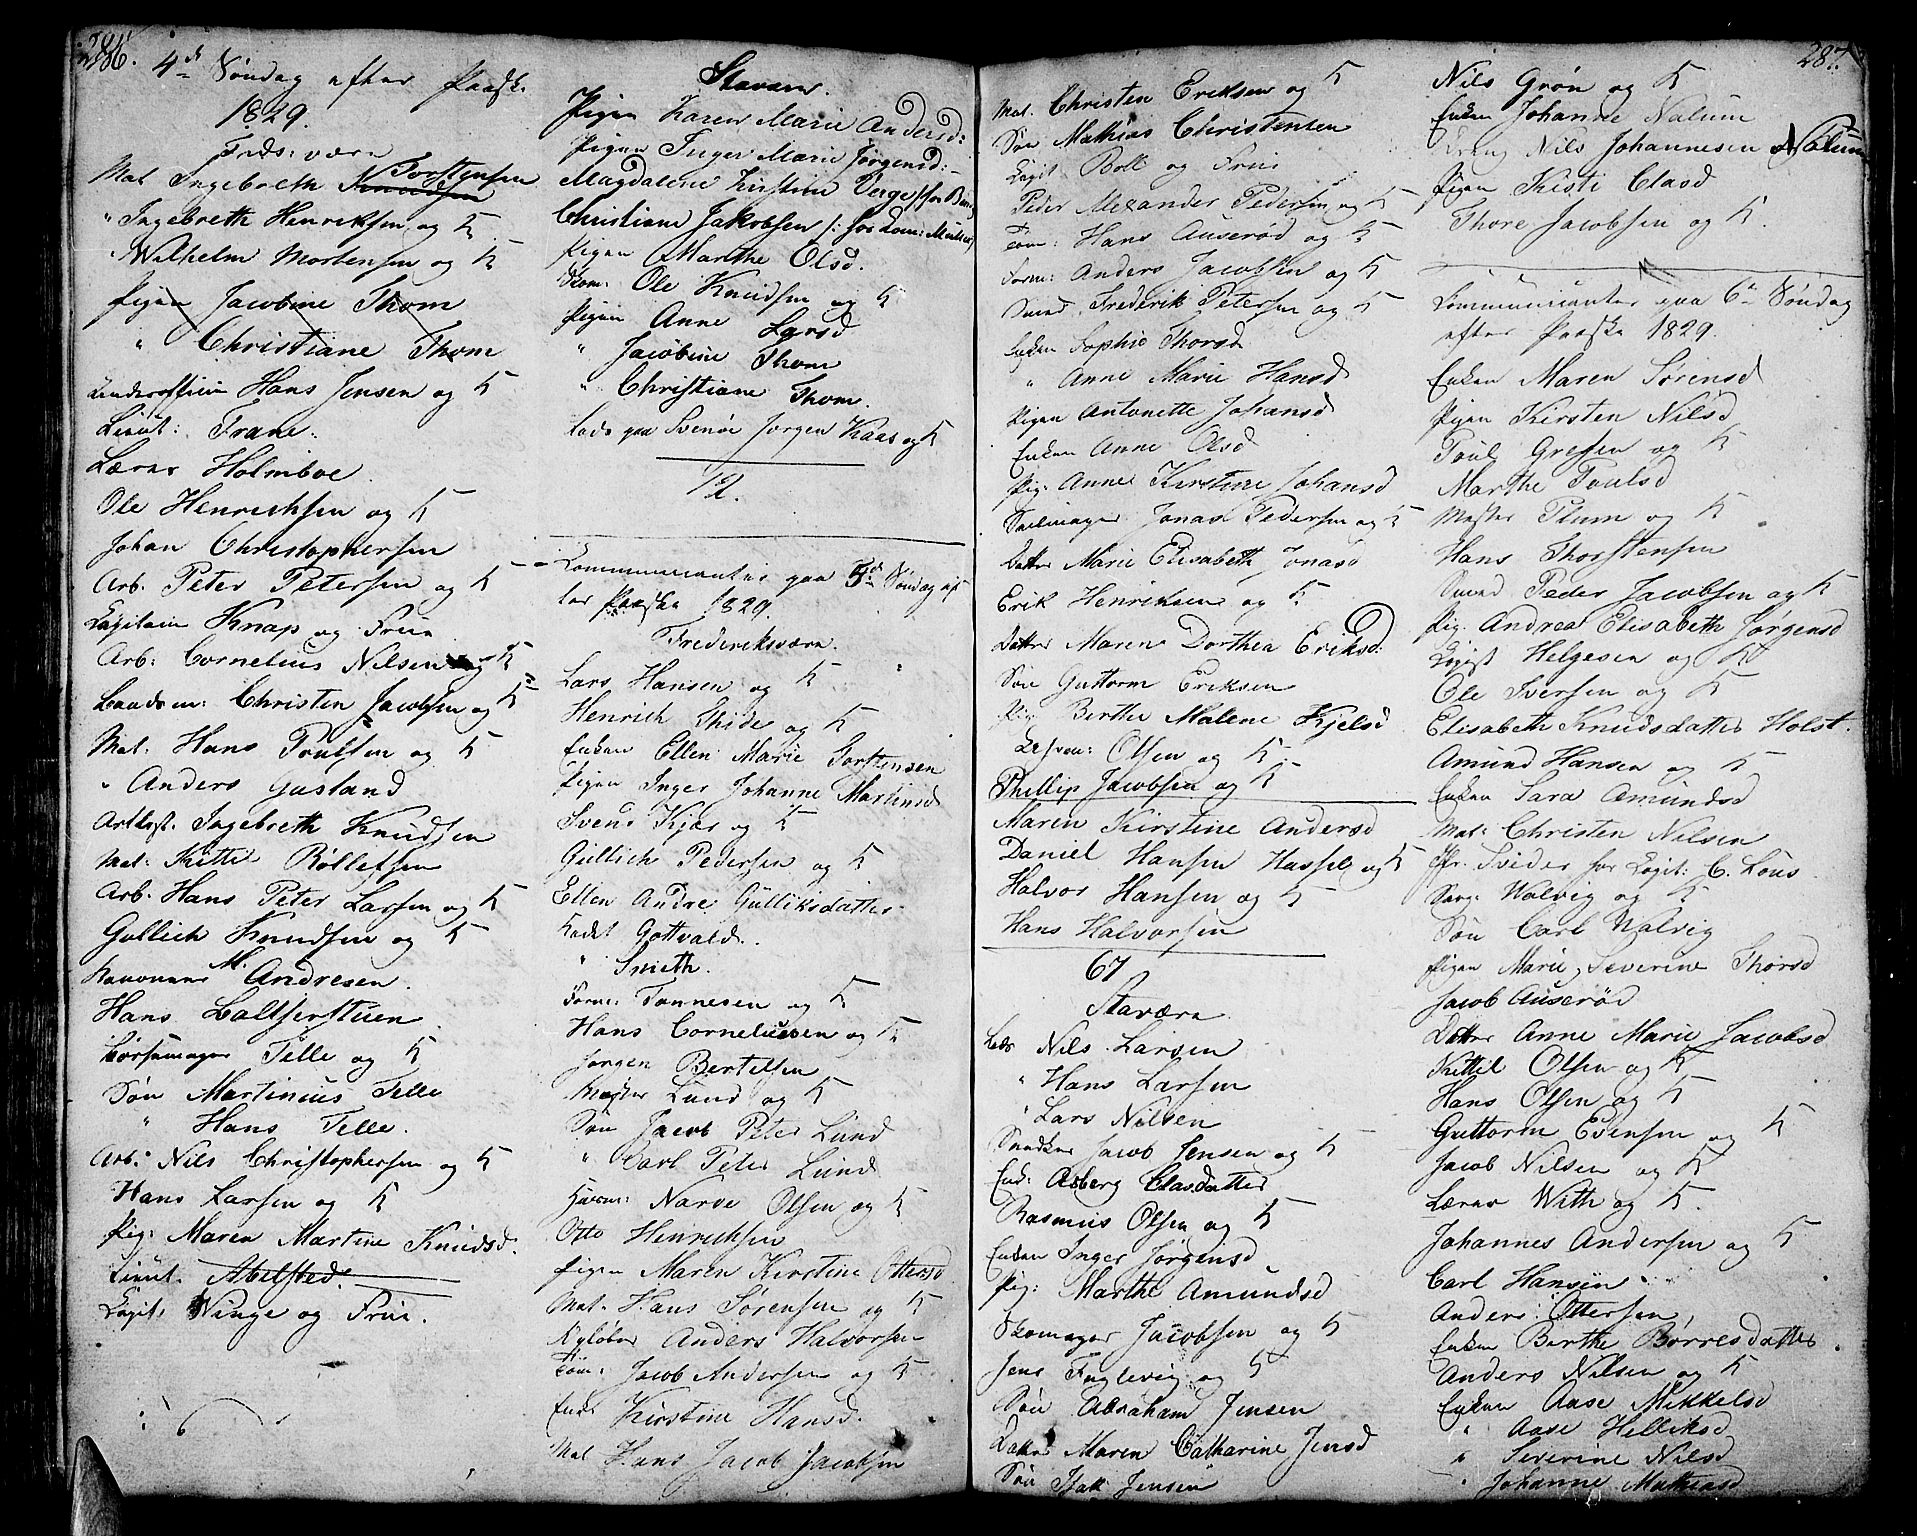 286.
4de Søndag efter Paaske
1829.
Frids:værn
Mat Ingebreth Knudsen Torstensen
" Ingebreth Henriksen og K
" Wilhelm Mortensen og K
Pigen Jacobine Thom
" Christiane Thom
Underofficier Hans Jensen og K
Lieut: Frane.
Lærer Holmboe.
Ole Henrichsen og K
Johan Christophersen
Arb. Peter Petersen og K
Capitain Knap og Frue
Arb: Cornelius Nilsen og K
Christen Jacobsen og K
Mat. Hans Poulsen og K
" Anders Gusland
Ingebreth Knudsen
Mat: Kittil Rølletsen
Arb. Hans Peter Larsen og K
Gullich Knudsen og K
M. Andresen.
Hans Baltserstuen
Telle og K
Søn Martinius Telle
" Hans Telle.
Arb. Nils Christophersen og K
Hans Larsen og K
Pig: Maren Martine Knudsd.
Lieut. Abelsted.
Capit: Winge og Frue.
Stavern.
Pigen Karen Marie Andersd:
Pigen Inger Marie Jørgensd:
Magdalene Kirstine Verge
Christiane Jakobsen
Pigen Marthe Olsd.
Ole Knudsen og K
Pigen Anne Larsd
" Jacobine Thom
" Christiane Thom.
Lods paa Svenør Jørgen Kaas og K
12.
Communicanter paa 5de Søndag ef
ter Paaske 1829.
Frederiksværn.
Lars Hansen og K
Henrich Thide og K
Enken Ellen Marie Torstensen
Pigen Inger Johanne Martinsd
Svend Kjær og K
Gullich Pedersen og K
Ellen Andre Gulliksdatter
Kadet Gottvald.
" Smith.
Tønnesen og K
Hans Corneliussen og K
Jørgen Bertelsen
Mester Lund og K
Søn Jacob Peter Lund
" Carl Peter Lund
Narve Olsen og K
Otto Henrichsen
Pigen Maren Kirstine Ottersd
Mat. Hans Sørensen og K
Anders Halvorsen
Tøm: Jacob Andersen og K
Enk: Kirstine Hansd.
Mat Hans Jacob Jacobsen
287.
Mat. Christen Eriksen og K
Søn Mathias Christensen
Capit Bull og Frue
Peder Alexander Pedersen og K
Tøm: Hans Auserød og K
Anders Jacobsen og K
Smed Frederik Petersen og K
Enken Sophie Thorsd
" Anne Marie Hansd
Pigen Antonette Johansd
Enken Anne Olsd
Pig. Anne Kirstine Johansd
Seilmager Jonas Pedersen og K
Datter Marie Elisabeth Jonasd
Erik Henriksen og K
Datter Maren Dorthea Eriksd.
Søn Guttorm Eriksen
Pig. Berthe Malene Kjelsd
Olsen og K
Phillip Jacobsen og K
Maren Kirstine Andersd
Daniel Hansen Hassel og K
Halvor Hansen og K
Hans Halvorsen
67
Staværn.
Lods Nils Larsen
" Hans Larsen
" Lars Nilsen
Snedker Jacob Jensen og K
Enk: Asberg Clasdatter
Rasmus Olsen og K
Enken Inger Jørgensd
Pig: Marthe Amundsd
Skomager Jacobsen og K
Jens Fuglevig og K
Søn Abraham Jensen
Datter Maren Catharine Jensd
Søn Isak Jensen
Nils Grøn og K
Enken Johanne Nalum
Nils Johannesen Nalum
Pigen Kisti Clasd
Thore Jacobsen og K
Communicanter paa 6te Søndag
efter Paaske 1829.
Enken Maren Sørensd
Pigen Kirsten Nilsd
Poul Gresen og K
Marthe Poulsd
Mester Plum og K
Hans Thorstensen
Smed Peder Jacobsen og K
Pig. Andrea Elisabeth Jørgensd
Helgesen og K
Ole Iversen og K
Elisabeth Knudsdatter Holst.
Amund Hansen og K
Enken Sara Amundsd
Mat: Christen Nilsen
Capit: C. Lous
Walvig og K
Søn Carl Walvig
Pigen Marie Severine Thorsd
Jacob Auserød
Datter Anne Marie Jacobsd
Kittil Olsen og K
Hans Olsen og K
Guttorm Evensen og K
Jacob Nilsen og K
Lærer With og K.
Johannes Andersen og K
Carl Hansen
Anders Ottersen
Enken Berthe Børresdatter
Anders Nilsen og K
Enken Aase Mikkelsd
" Aase Helliksd
" Severine Nilsd
" Johanne Mathiasd